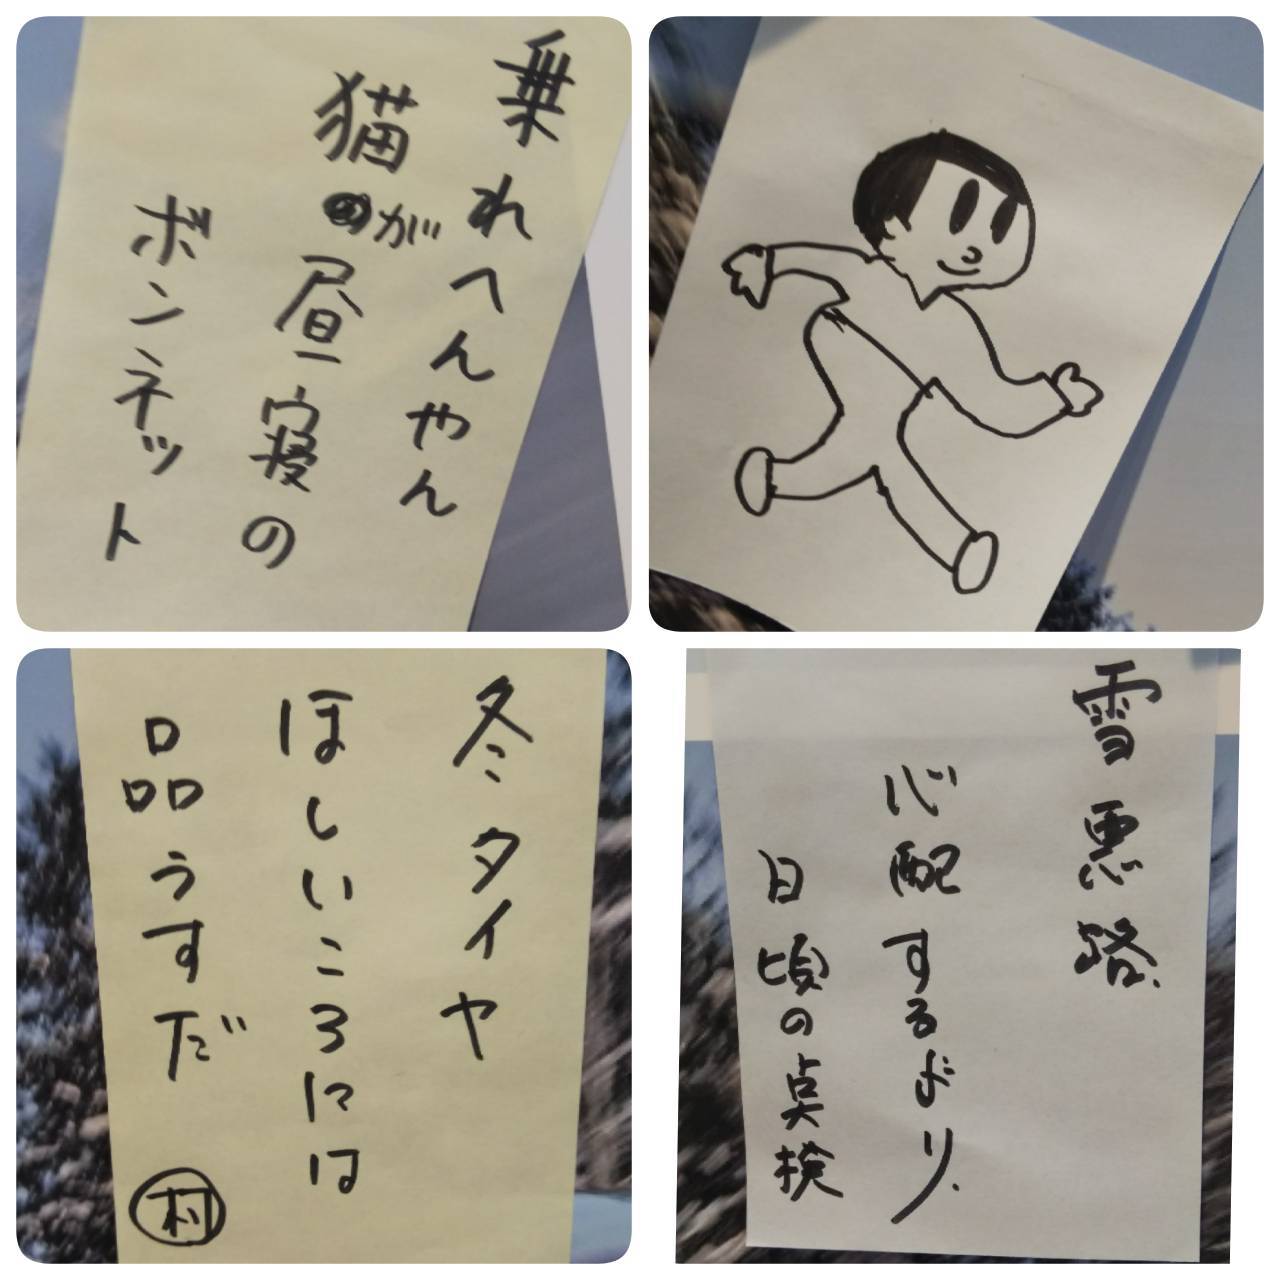 乗れへんやん
猫が昼寝の
ボンネット
冬タイヤ
ほしいころには
品うすだ
村
雪悪路
心配するより
日頃の点検